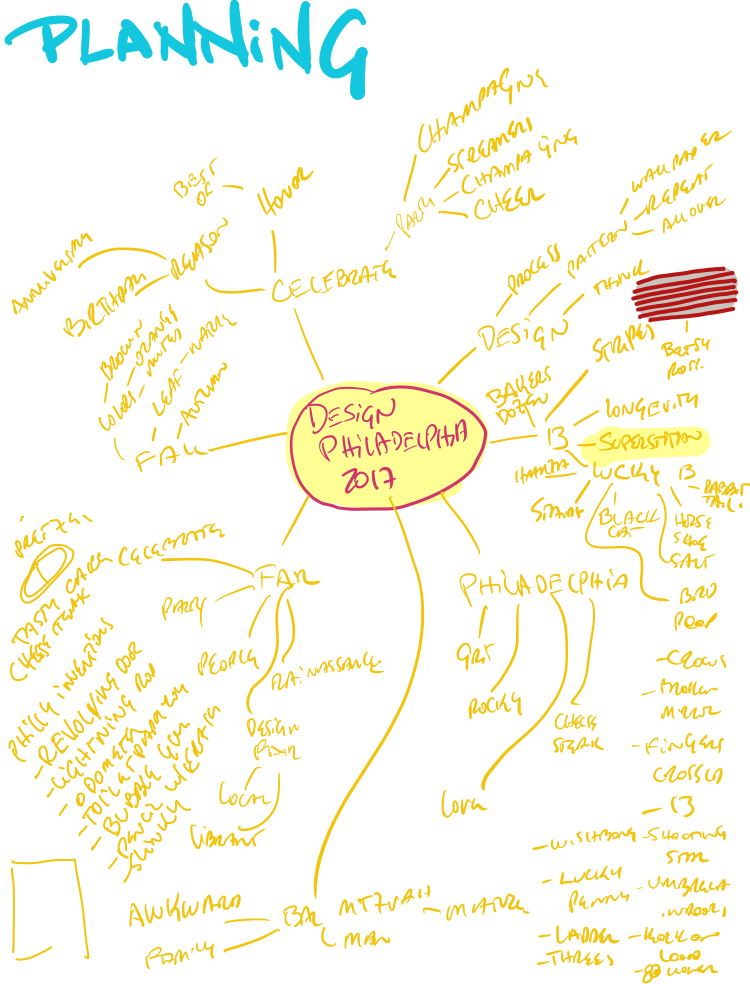 PLANNING
CHAMPAGNE
STREAMERS
CHAMPAGNE
CHEER
BEST
OF
HONOR
PARTY
WALLPAPER
REPEAT
ALLOVER
PATTERN
PROCESS
REASON
ANNIVERSARY
BIRTHDAY
CELEBRATE
DESIGN
STRIPES
BETSY
ROSS.
BROWN
ORANGE
COLORS
LEAF
AUTUMN
FALL
BAKERS
DOZEN
LONGEVITY
13
SUPERSTATION
DESIGN
PHILADELPHIA
2017
LUCKY 13
RABBIT
TAIL.
BLACK
CAT
HORSE
SHOE
SALT
BIRD
POOP
PRETZEL
CELEBRATE
TASTY CAKE
CHEESE STEAK
FAIR
PARTY
PEOPLE
RAINASSANCE
PHILADELPHIA
GRIT
ROCKY
CHEESE
STEAK
LOVE
DESIGN
FAIR
LOCAL
VIBRANT
PHILLY INVENTIONS
- REVOLVING DOOR
- LIGHTNING ROD
- ODOMETER
- BUBBLE GUM
- PENCIL W/ERASER
- SLINKY
- CROWS
- BROKEN
MIRROR
- FINGERS
CROSSED
- 13
- WISHBONE
- SHOOTING
STAR
- LUCKY
PENNY
- UMBRELLA
INDOORS
- LADDER
- THREES
- KNOCK ON
WOOD
AWKWARD
FAMILY
BAR
MITZVAH
MAN